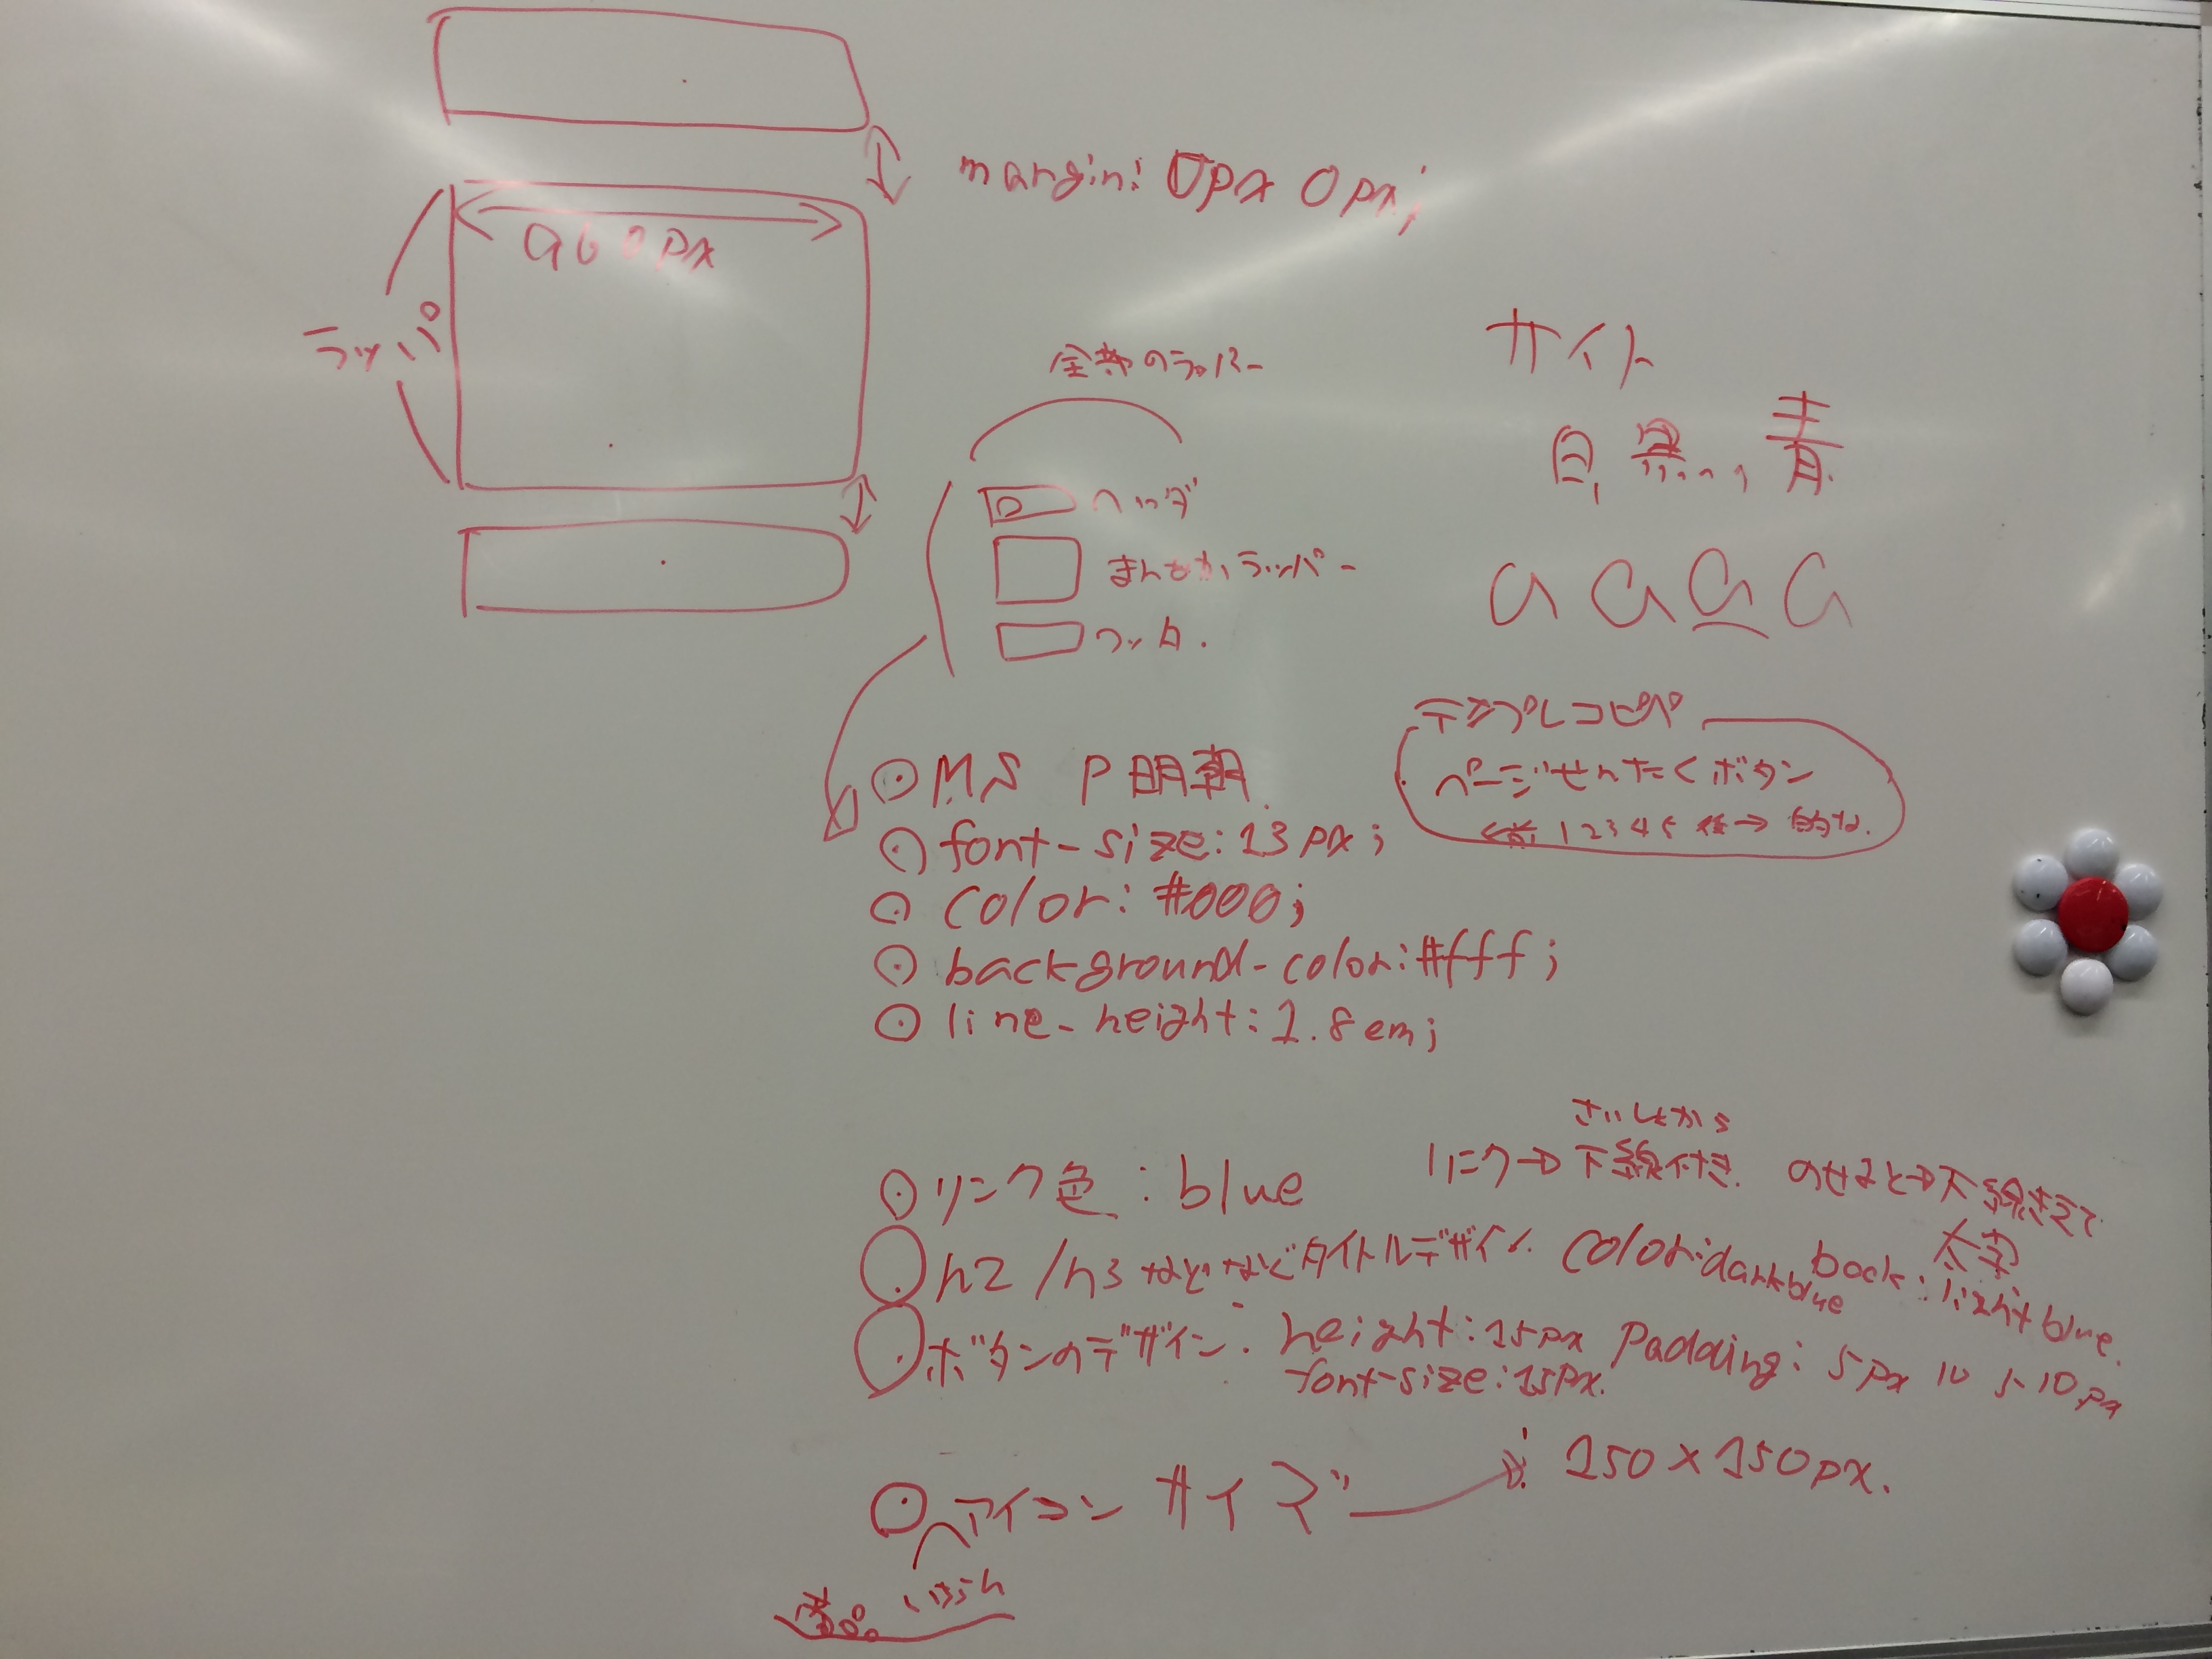 margin: 0px 0px;
960px
ラッパ
全体のラッパー
ヘッダ
まんなかラッパー
フッタ.
サイト
白, 黒..., 青.
a a a a
テンプレコピペ
ページせんたくボタン
←前 1 2 3 4 5 後→ 的な.
⊙ MS P明朝.
⊙ font-size: 13px;
⊙ color: #000;
⊙ background-color: #fff;
⊙ line-height: 1.8em;
さいしょから
⊙ リンク色 : blue リンク→下線付き. のせると→下線きえて
太字
⊙ h2/h3などなどタイトルデザイン. color: darkblue back: lightblue.
⊙ ボタンのデザイン. height: 15px padding: 5px 10 5 10px
font-size: 15px.
⊙ アイコン サイズ : 150×150px.
いちらん